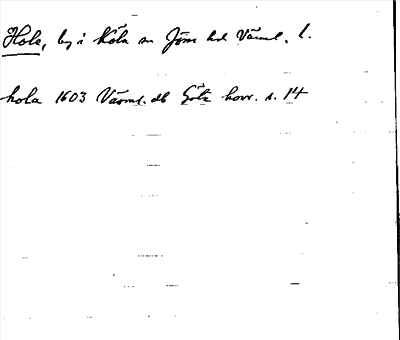 Hola, by i Köla sn Jösse hd Värml. l.
hola 1603 Värml. db Göta hovr. s. 14